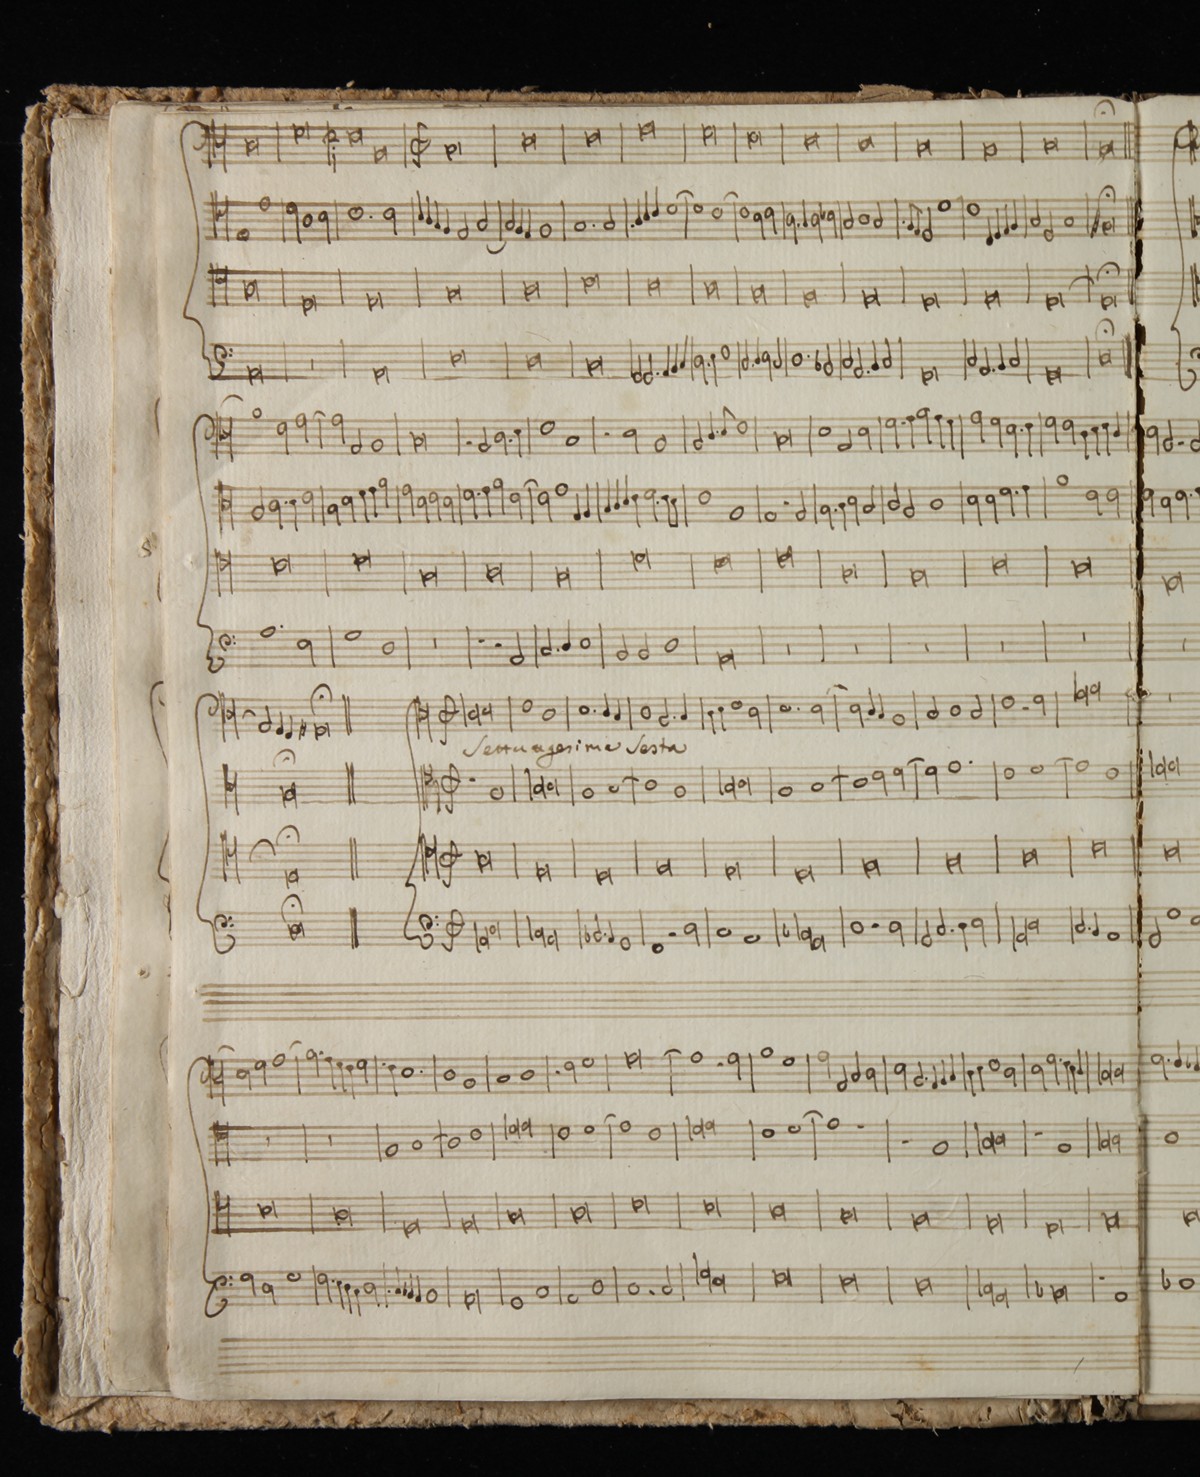 Settuagesima Sesta